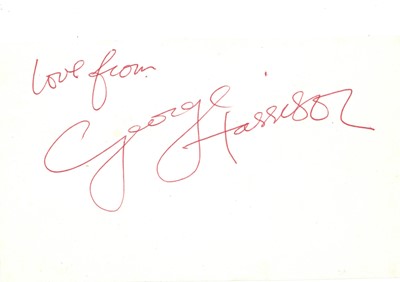 love from
George Harrison